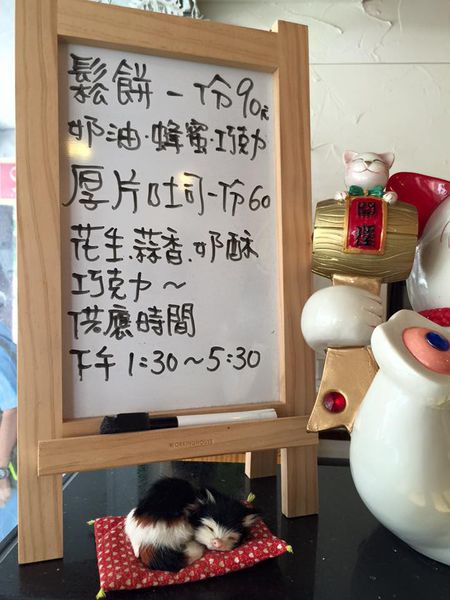 鬆餅一份90元
奶油·蜂蜜·巧克力
厚片吐司一份60
花生.蒜香.奶酥
巧克力~
供應時間
下午1:30~5:30
WORKINGHOUSE
開運